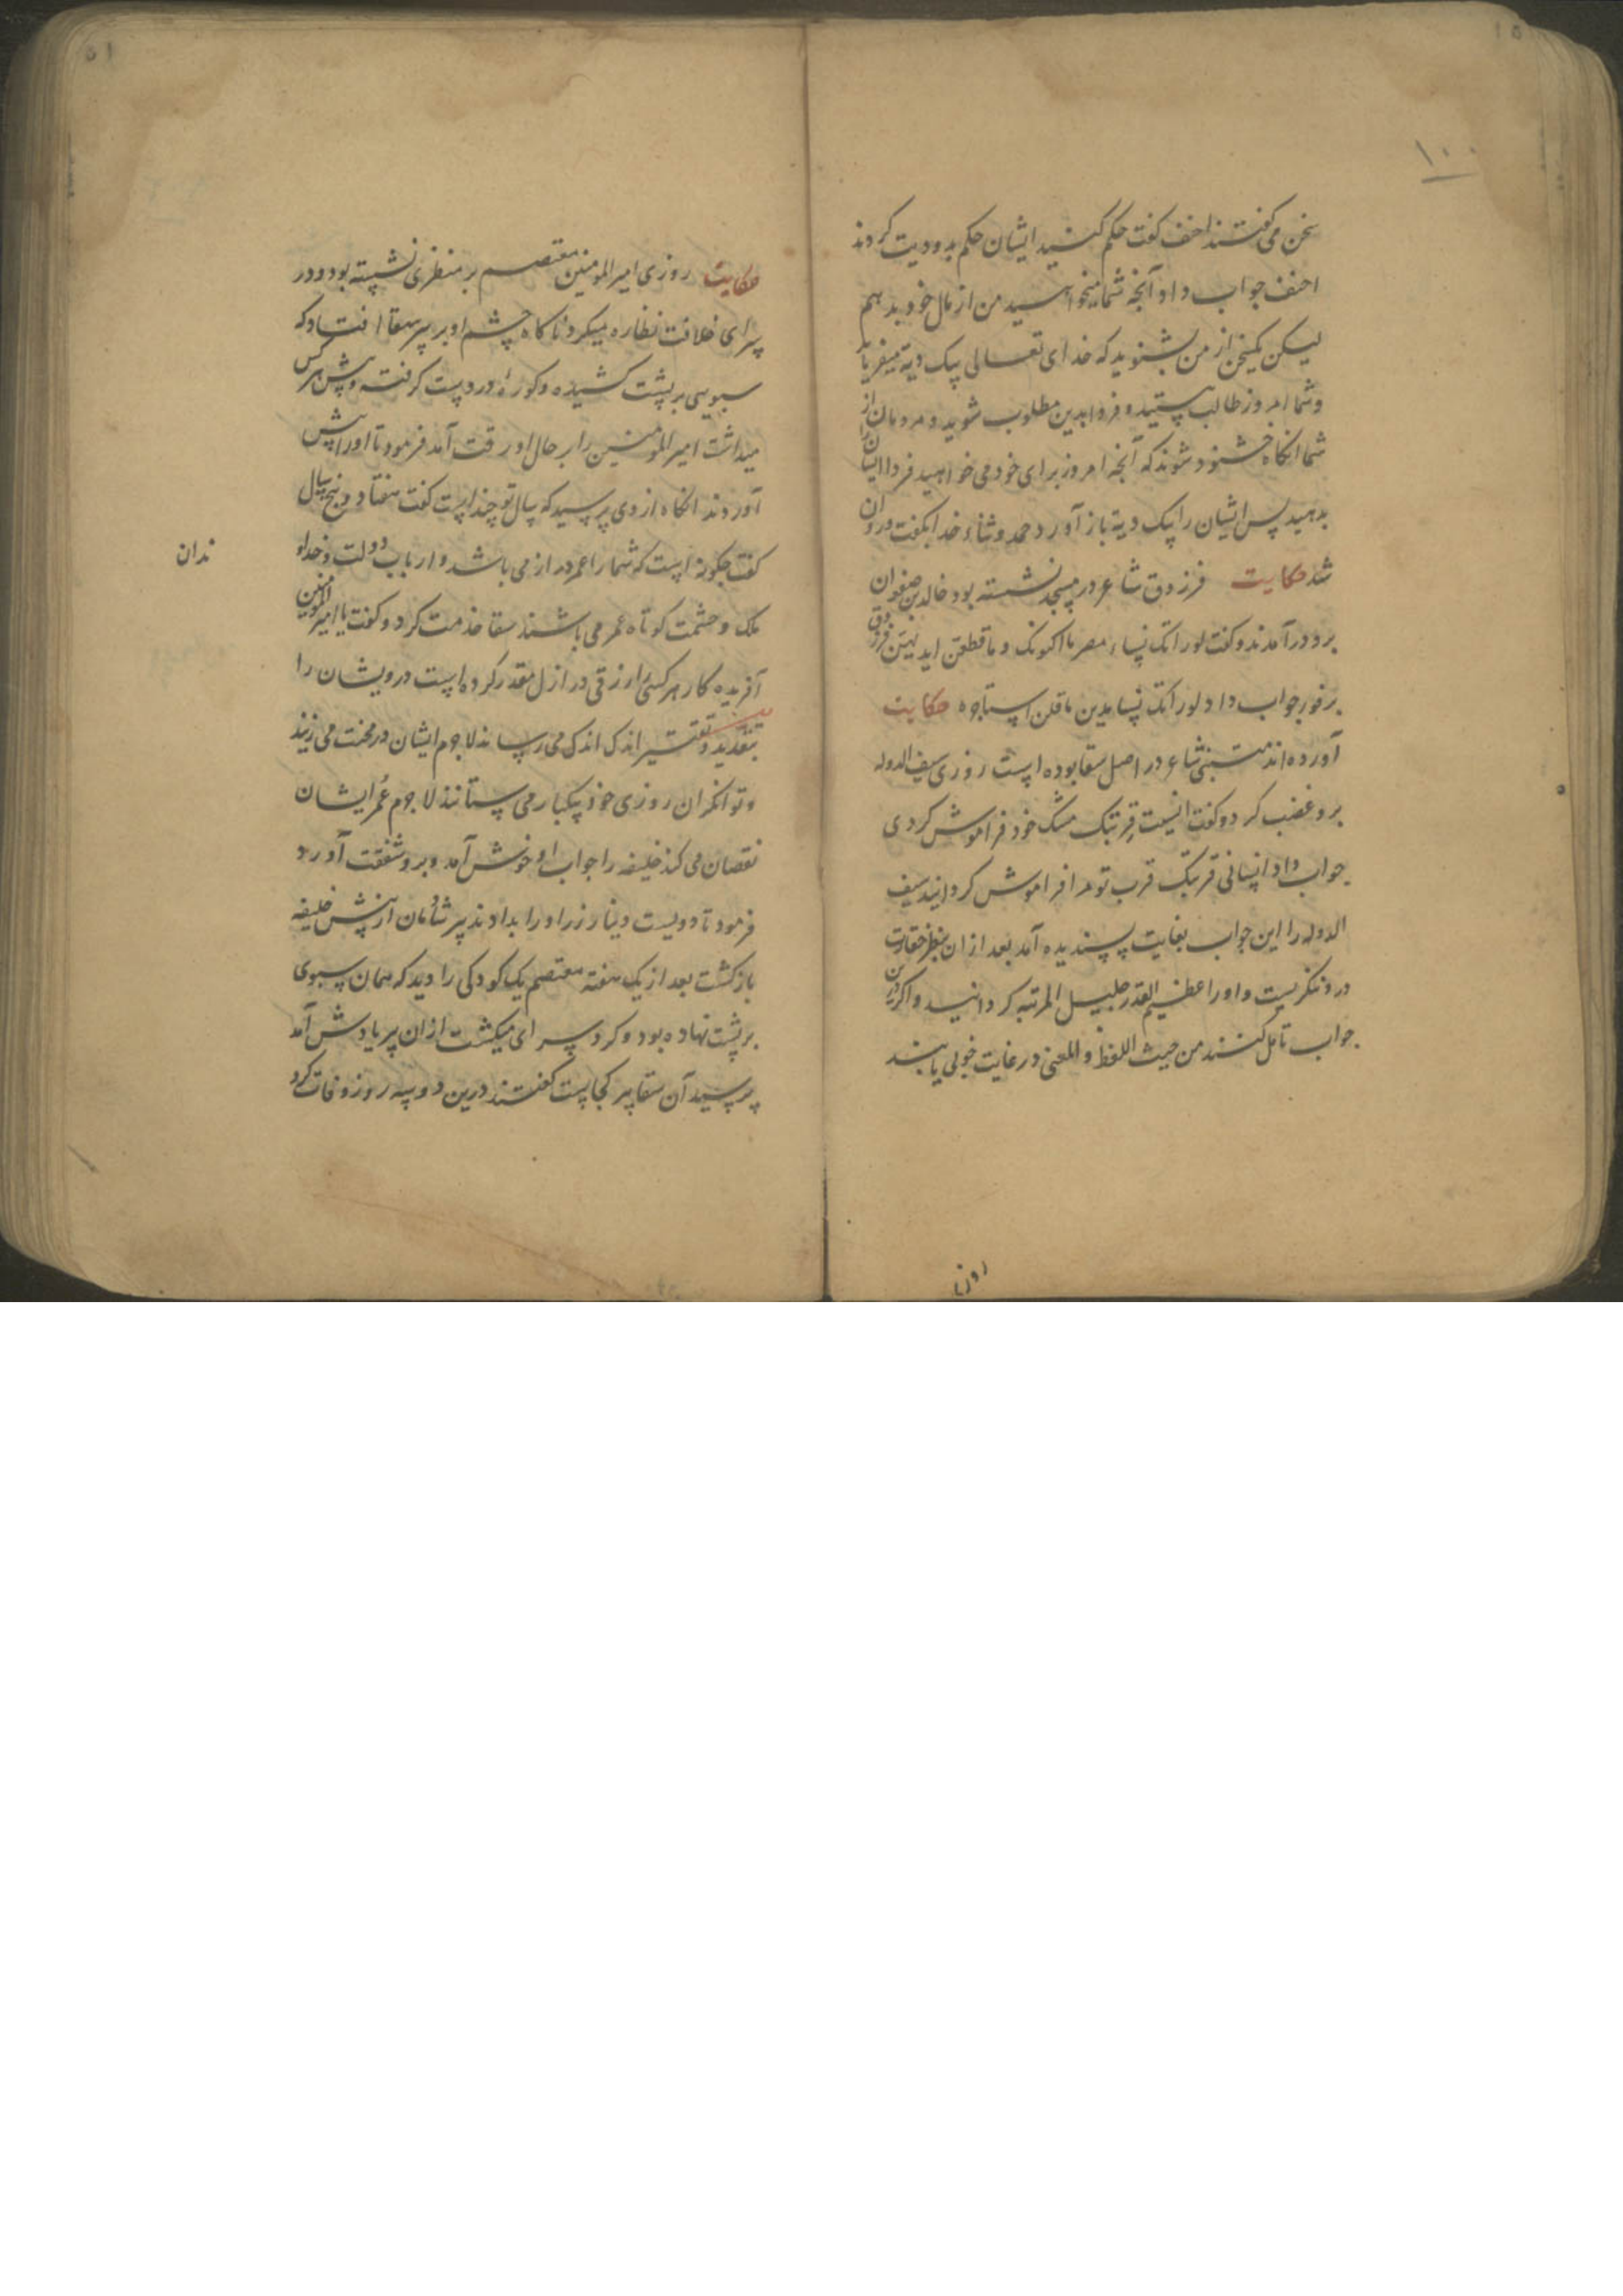 ۱۰۰
سخن می گفتند احنف گفت حکم کنید ایشان حکم بدو دیت کردند
احنف جواب داد آنچه شما میخواهید من از مال خود بدهم
لیکن یکسخن از من بشنوید که خدای تعالی بیک دیة میفرماید
و شما امروز طالب هستید و فردا بدین مطلوب شوید و مردمان از
شما انکاه خشنود شوند که آنچه امروز برای خود می خواهید فردا ایشان را
بدهید پس ایشان را بیک دیة باز آورد حمد و ثناء خدا بکفت و روان
شد حکایت فرزدق شاعر در مسجد نشسته بود خالد بن صفوان
برو در آمدند و کفت لو راتک نساء مصر ما اکبرنک و ما قطعن ایدیهن فرزدق
بر فور جواب داد لو راتک نساء مدین ما قلن استاجره حکایت
آورده اند متنبی شاعر در اصل سقا بوده است روزی سیف الدوله
برو غضب کرد و کفت انسیت قربتک مشک خود فراموش کردی
جواب داد انسانی قربک قرب تو مرا فراموش کردانید سیف
الدوله را این جواب بغایت پسندیده آمد بعد ازان بنظر حقارت
درو ننکریست و او را عظیم القدر جلیل المرتبه کردانید و اکر درین
جواب تأمل کنند من حیث اللفظ و المعنی در غایت خوبی یابند
حکایت روزی امیر المومنین معتصم بر منظری نشسته بود و در
سرای خلافت نظاره میکرد ناکاه چشم او بر پیر سقا افتاد که
سبویی بر پشت کشیده و کوزهٔ در دست کرفته و پیش هر کس
میداشت امیر المومنین را بر حال او رقت آمد فرمود تا او را پیش
آوردند انکاه از وی پرسید که سال تو چند است کفت هفتاد و پنج سال
کفت چکونه است که شما را عمر دراز می باشد و ارباب دولت و خداو
ندان
ملک و حشمت کوتاه عمر می باشند سقا خدمت کرد و کفت یا امیر المومنین
آفریده کار هر کسی را رزقی در ازل مقدر کرده است درویشان را
و تقتیر اندک اندک می رساند لا جرم ایشان در محنت می زیند
و توانکران روزی خود بیکبار می ستانند لا جرم عُمر ایشان
نقصان می کند خلیفه را جواب او خوش آمد و برو شفقت آورد
فرمود تا دویست دینار زر او را بدادند پیر شادمان از پیش خلیفه
باز کشت بعد از یک هفته معتصم یک کودکی را دید که همان سبوی
بر پشت نهاده بود و کرد سرای میکشت ازان پیر یادش آمد
پرسید آن سقا پیر کجاست کفتند درین دو سه روز وفات کرد